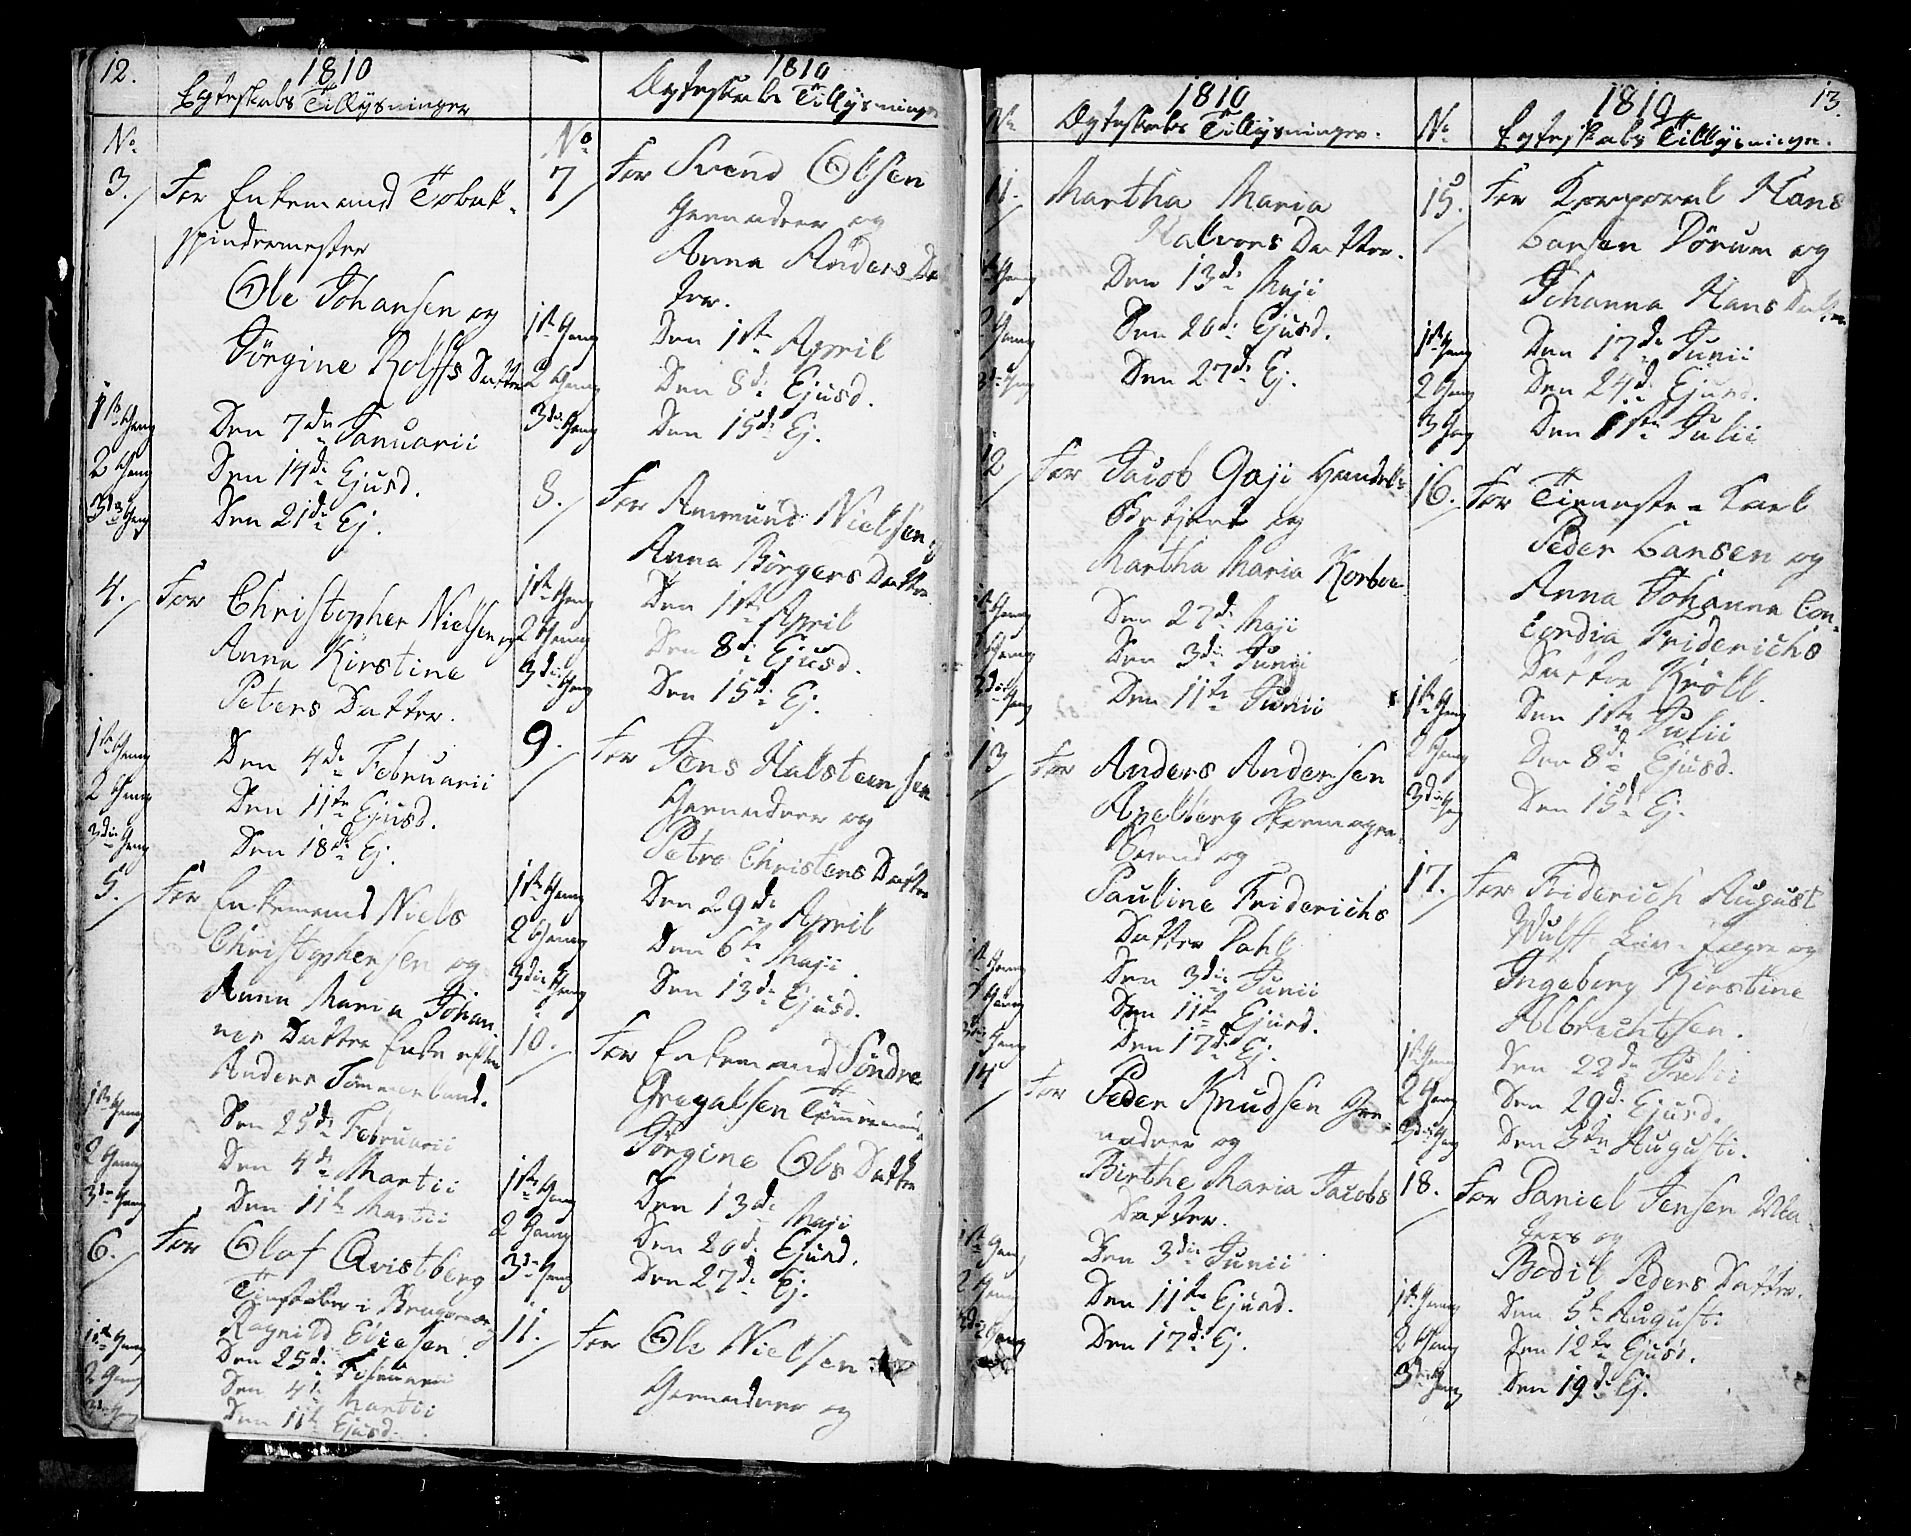 12.
1810
Egteskabs Tillysninger
No
3. For Enkemand Tobak-
spindermester
Ole Johansen og
Jørgine Rolffs Datter
1ste Gang Den 7de Januarii
2 Gang Den 14de Ejusd.
3die Gang Den 21de Ej.
4. For Christopher Nielsen og
Anna Kirstine
Peters Datter.
1ste Gang Den 4de Februarii
2 Gang Den 11te Ejusd.
3die Gang Den 18de Ej.
5. For Enkemand Niels
Christophersen og
Anna Maria Johan-
nes Datter Enke efter
Anders Tømmerland.
1ste Gang Den 25de Februarii
2 Gang Den 4de Martii
3die Gang Den 11te Martii
6. For Olaf Qvistberg
i
Ragnild
1ste Gang Den 25de Februarii
2 Gang Den 4de Martii
3die Gang Den 11te Ejusd.
1810
Ægteskabs Tillysninger
No
7 For Svend Olsen
Gernadeer og
Anna Anders Dat
ter.
1ste Gang Den 1ste April
2 Gang Den 8de Ejusd.
3die Gang Den 15de Ej.
8. For Ammund Nielsen og
Anna Børgers Datter
1ste Gang Den 1ste April
2 Gang Den 8de Ejusd.
3die Gang Den 15de Ej.
9. For Jens Halsteensen
Gernadeer og
Petra Christens Datter
1ste Gang Den 29de April
2 Gang Den 6te Maji.
3die Gang Den 13de Ejusd.
10. For Enkemand Søndre
Gregalsen Tømmermand
Jørgine Ols Datter
1ste Gang Den 13de Maji
2 Gang Den 20de Ejusd.
3die Gang Den 27de Ej.
11. For Ole Nielsen
Gernadeer og
1810
No Ægteskabs Tillysninger.
11. Martha Maria
Halvors Datter.
1ste Gang Den 13de Maji
2 Gang Den 20de Ejusd.
3die Gang Den 27de Ej.
12 For Jacob Gaji Handels
Betjent og
Martha Maria Korboe
1ste Gang Den 27de Maji
2 Gang Den 3die Junii
3die Gang Den 11te Junii
13 For Anders Andersen
Apelberg Skomager
Svend og
Pauline Friderichs
Datter Dahl
1ste Gang Den 3die Junii
2 Gang Den 11te Ejusd.
3die Gang Den 17de Ej.
14 For Peder Knudsen Ger-
nadeer og
Birthe Maria Jacobs
Datter.
1ste Gang Den 3die Junii
2 Gang Den 11te Ejusd.
3die Gang Den 17de Ej.
13.
1810
No Egteskabs Tillysninger.
15. For Korporal Hans
Larsen Dørum og
Johanna Hans Datter
1ste Gang Den 17de Junii
2 Gang Den 24de Ejusd.
3 Gang Den 1ste Julii
16. For Tieneste-Karl
Peder Larsen og
Anna Johanna Con-
cordia Friderichs
Datter Krøll.
1ste Gang Den 1ste Julii
2 Gang Den 8de Ejusd.
3die Gang Den 15de Ej.
17. For Friderich August
Wulff og
Ingeborg Kirstine
Albrechtsen.
1ste Gang Den 22de Julii
2 Gang Den 29de Ejusd.
3die Gang Den 5te Augusti.
18. For Daniel Jensen
og
Bodil Peders Datter.
1ste Gang Den 5te Augusti
2 Gang Den 12te Ejusd.
3die Gang Den 19de Ej.